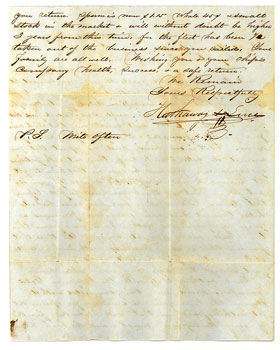 your return. Sperm is now $1.15 Whale 45¢ & small
Stock in the market & will without doubt be higher
3 years from this time. for the fleet has been
taken out of the business since you sailed. Your
family are all well. Wishing you & your ships
Company health, success, & a safe return.
We Remain
Yours Respectfully
Hathaway & Luce
P.S. Write often